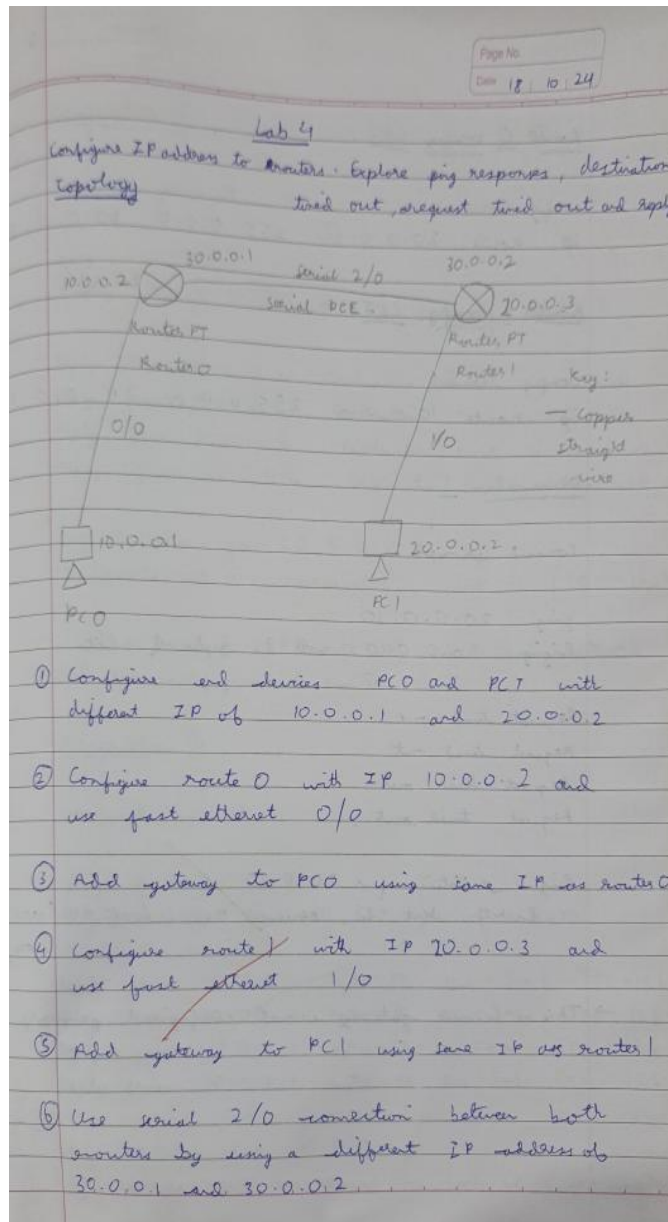 Page No
Date 18 10 24
Lab 4
Configure IP address to routers. Explore ping responses, destination
Topology timed out, request timed out and repl
30.0.0.1 serial 2/0 30.0.0.2
10.0.0.2 serial DCE. 20.0.0.3
Router, PT Router, PT
Router 0 Router 1 Key:
— Copper
0/0 1/0 straight
wire
10.0.0.1 20.0.0.2
PC0 PC1
① Configure end devices PC0 and PC1 with
different IP of 10.0.0.1 and 20.0.0.2
② Configure route 0 with IP 10.0.0.2 and
use fast ethernet 0/0
③ Add gateway to PC0 using same IP as router 0
④ Configure route 1 with IP 20.0.0.3 and
use fast ethernet 1/0
⑤ Add gateway to PC1 using same IP as router 1
⑥ Use serial 2/0 connection between both
routers by using a different IP address of
30.0.0.1 and 30.0.0.2